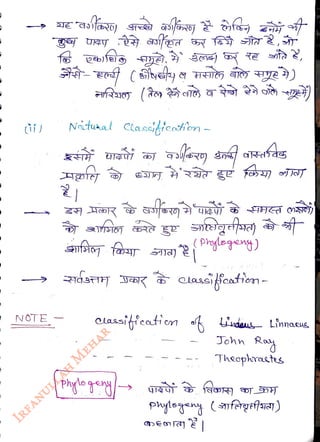 → यह वर्गीकरण अच्छा वर्गीकरण है लेकिन इनमें भी
कुछ पादप ऐसे वर्गीकृत कर दिये जाते है, जो
कि एकाधिक समूहों में उलझ कर रह जाते है,
जैसे - हल्दी ( औषधीय व मसाले वाले समूह में )
नारियल ( तेल देने वाले व रेशे देने वाले समूह में )
(ii) Natural Classification -
इसमें पादपों का वर्गीकरण उनकी वास्तविक
प्रकृति को ध्यान में रखते हुए किया जाता
है।
→ इस प्रकार के वर्गीकरण में पादपों के समस्त लक्षणों
को शामिल करते हुए जातिवृत्तीयता को भी
(Phylogeny)
शामिल किया जाता है।
→ सर्वोत्तम प्रकार के classification -
NOTE - classification of Linnaeus
-- John Ray
-- Theophrastus
Phylogeny → पादपों के विकास का क्रम
phylogeny ( जातिवृत्तीयता )
कहलाता है।
IRFANULLAH MEHAR